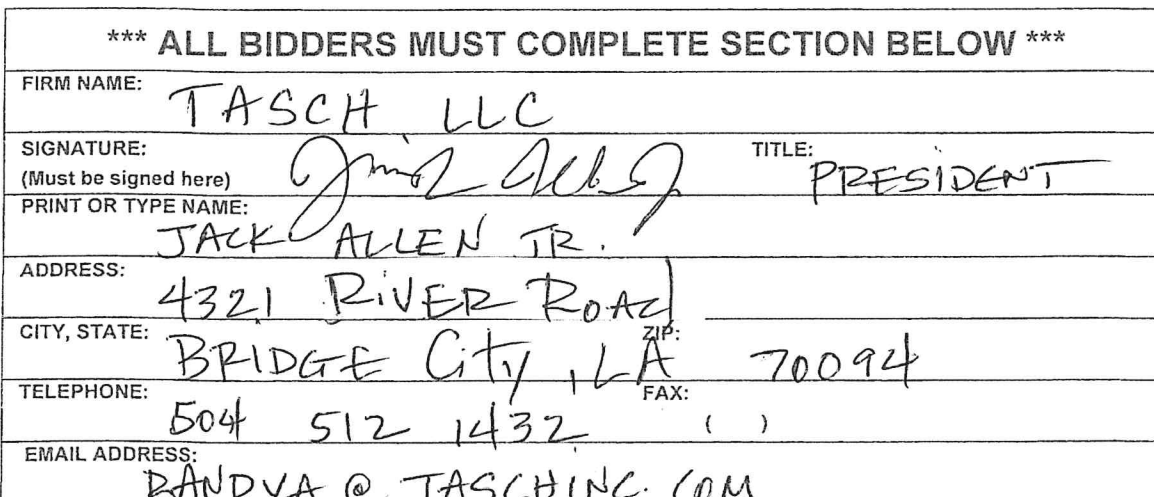 *** ALL BIDDERS MUST COMPLETE SECTION BELOW ***
FIRM NAME: TASCH LLC
SIGNATURE:
(Must be signed here)
TITLE: PRESIDENT
PRINT OR TYPE NAME:
JACK ALLEN JR.
ADDRESS: 4321 RiVER ROAd
CITY, STATE: BRIDGE City, LA ZIP: 70094
TELEPHONE: 504 512 1432 FAX: ( )
EMAIL ADDRESS:
@ TASCHINC.COM